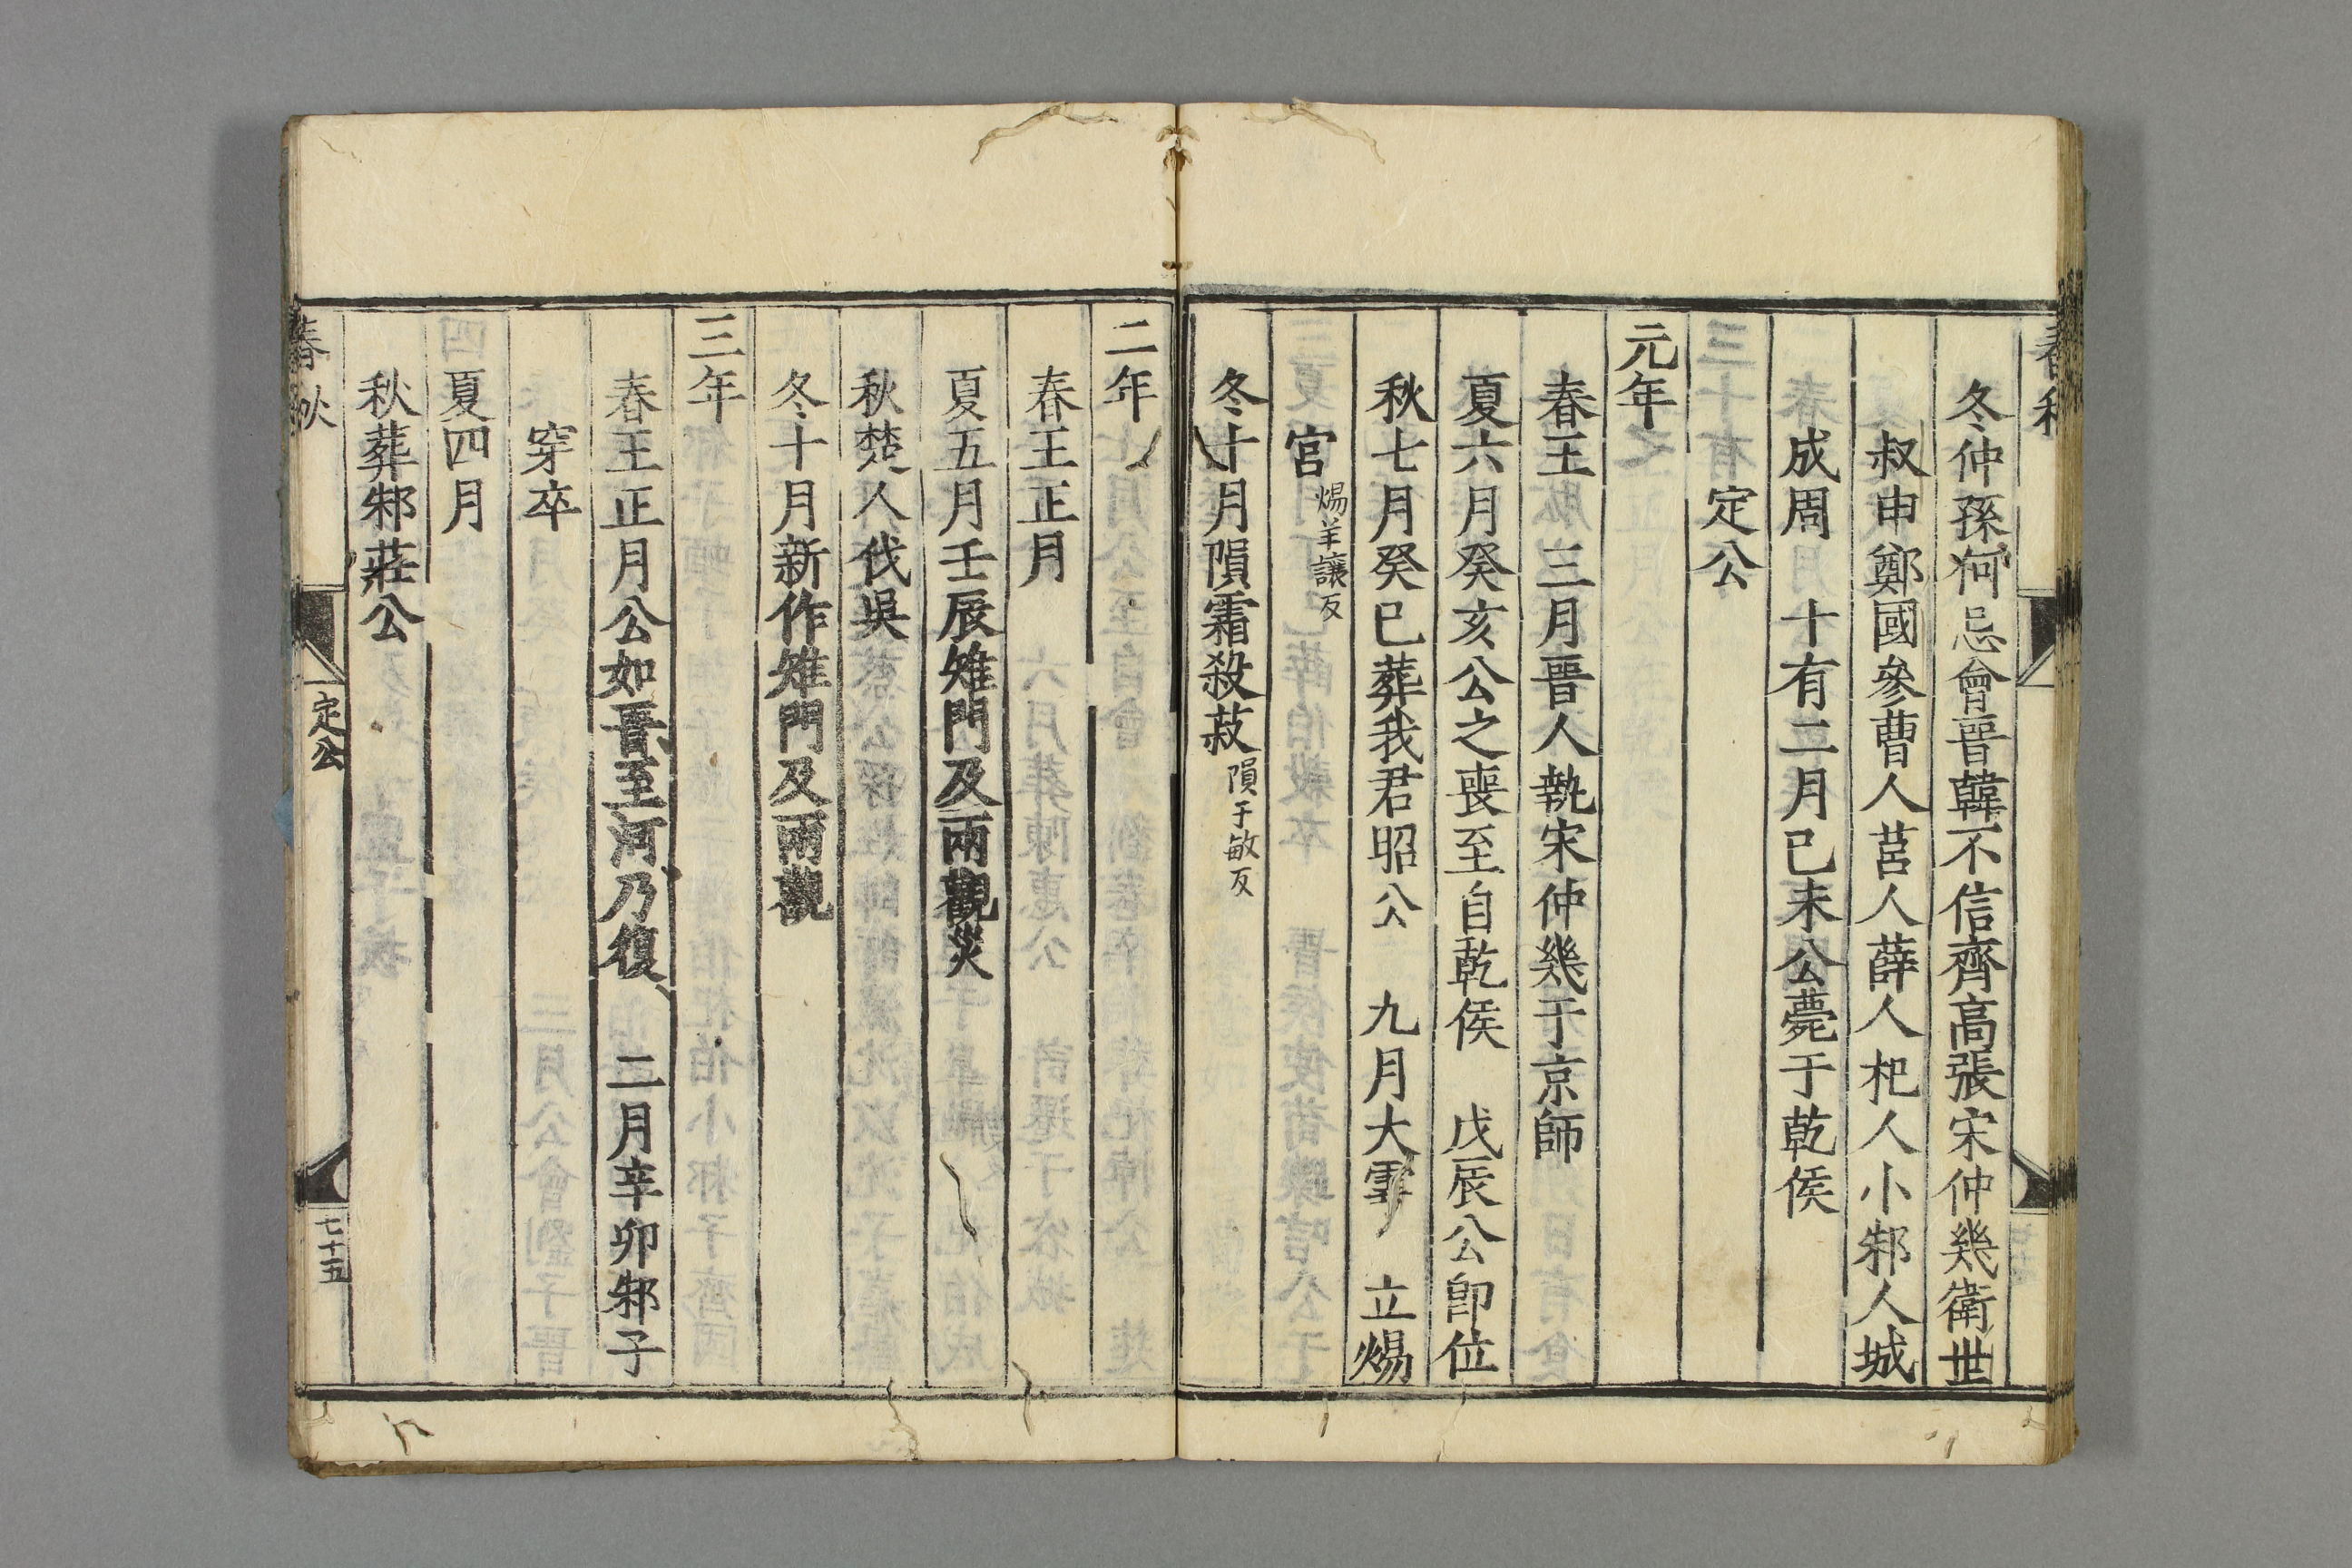 春秋
冬仲孫何忌會晉韓不信齊高張宋仲幾衛世
叔申鄭國參曹人莒人薛人杞人小邾人城
成周 十有二月己未公薨于乾侯
定公
元年
春王 三月晉人執宋仲幾于京師
夏六月癸亥公之喪至自乾侯 戊辰公卽位
秋七月癸巳葬我君昭公 九月大雩 立煬
宮 煬羊讓反
冬十月隕霜殺菽 隕于敏反
二年
春王正月
夏五月壬辰雉門及兩觀災
秋楚人伐吳
冬十月新作雉門及兩觀
三年
春王正月公如晉至河乃復 二月辛卯邾子
穿卒
夏四月
秋葬邾莊公
春秋
定公
七十五